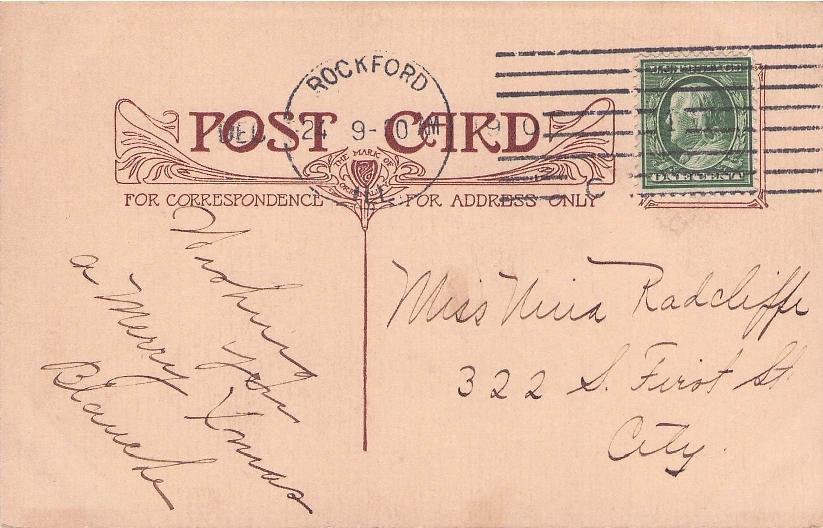 ROCKFORD
DEC 24 9-30 AM 190
ILL.
C
POST CARD
THE MARK OF
FOR CORRESPONDENCE
FOR ADDRESS ONLY
ONE CENT
Wishing
you
a Merry Xmas
Blanche
Miss Nina Radcliffe
322 S. First St
City.